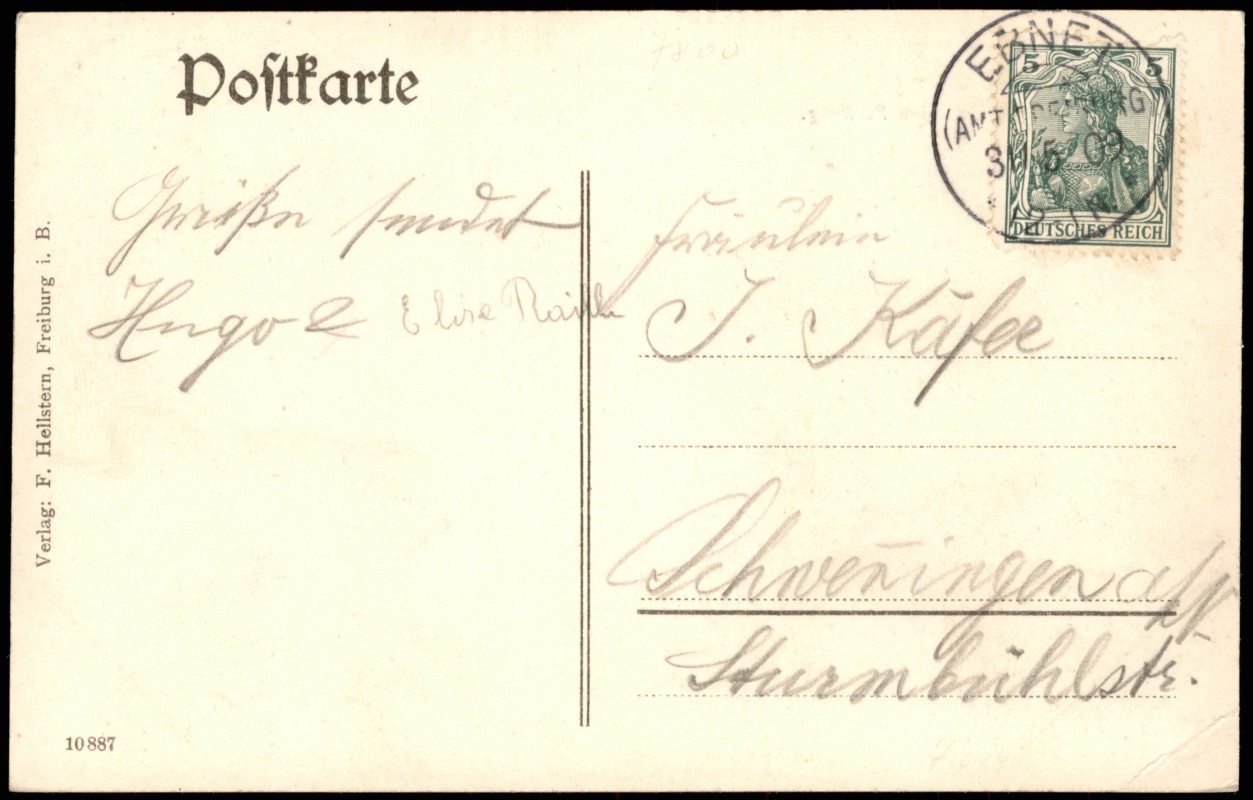 Postkarte
EBNET
(AMT FREIBURG
5 09
5 5
DEUTSCHES REICH
Grüße sendet
Hugo & Elise
Fräulein
J. Käfer
Schwenningen a/N
Sturmbühlstr.
Verlag: F. Hellstern, Freiburg i. B.
10887